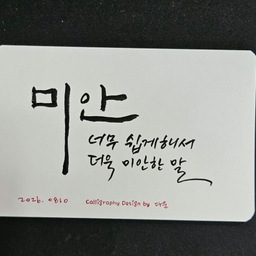 미안
너무 쉽게해서
더욱 미안한 말
2026. 0810
Calligraphy Design by